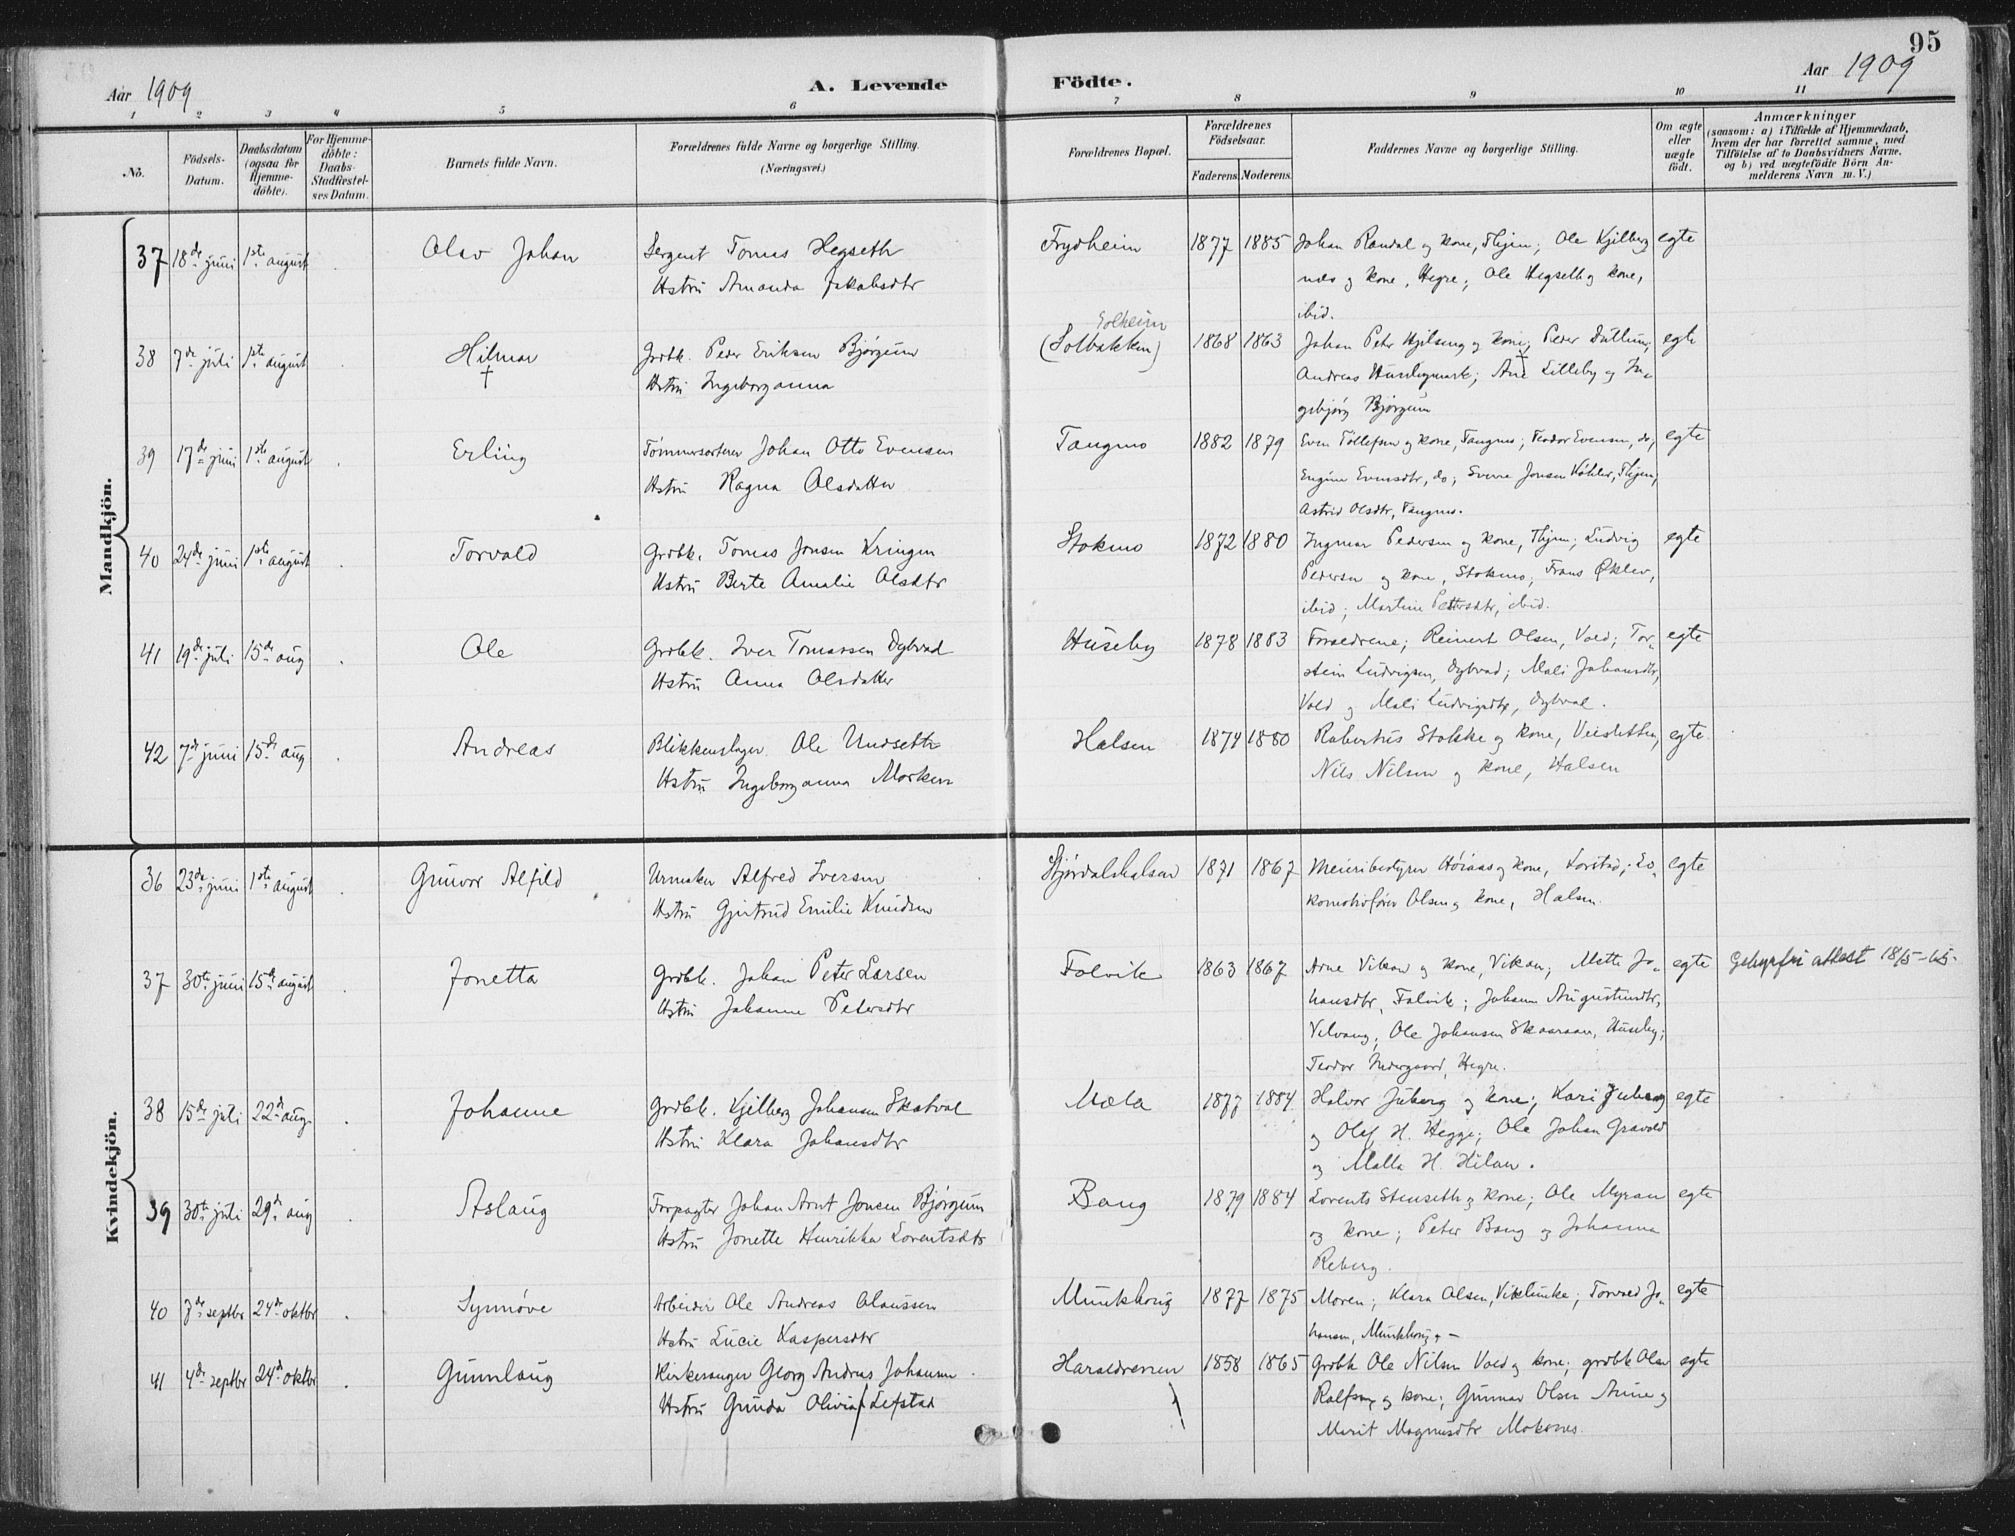 95
Aar 1909
A. Levende Födte.
Aar 1909
1 2 3 4 5 6 7 8 9 10 11
No.
Födsels-Datum.
Daabsdatum (ogsaa for Hjemme-döbte).
For Hjemme-döbte: Daabs-Stadfæstel-ses Datum.
Barnets fulde Navn.
Forældrenes fulde Navne og borgerlige Stilling. (Næringsvei.)
Forældrenes Bopæl.
Forældrenes Födselsaar.
Faderens. Moderens.
Faddernes Navne og borgerlige Stilling.
Om ægte eller uægte födt.
Anmærkninger
(saasom: a) i Tilfælde af Hjemmedaab,
hvem der har forrettet samme, med
Tilföielse af to Daabsvidners Navne.
og b) ved uægtefödte Börn An-
melderens Navn m. V.)
Mandkjön.
37 18de juni 1ste august Olav Johan
Sergent Tomas Hegseth
Hstru Amanda Jakobsdtr
Frydheim 1877 1885
Johan Randal og kone, Thjem; Ole Kjelberg
næs og kone, Hegre; Ole Hegseth og kone,
ibid.
egte
38 7de juli 1ste august Hilmar †
Grdbk. Peder Eriksen Bjørgum
Hstru Ingeborganna
Solheim
(Solbakken) 1868 1863
Johan Peter Hjelseng og kone; Peder Dullum;
Andreas Husbymark; Ane Lilleby og In-
gebjørg Bjørgum
egte
39 17de juni 1ste august Erling
Tømmersorterer Johan Otto Evensen
Hstru Ragna Olsdatter
Tangmo 1882 1879
Even Tollefsen og kone, Tangmo; Teodor Evensen, do;
Engine Evensdtr, do; Sverre Jonsen Køhler, Thjem;
Astrid Olsdtr, Tangmo.
egte
40 24de juni 1ste august Torvald
Grdbk. Tomas Jonsen Kringen
Hstru Berte Amalie Olsdtr
Stokmo 1872 1880
Ingmar Pedersen og kone, Thjem; Ludvig
Pedersen og kone, Stokmo; Frans Øklev,
ibid; Martine Pettersdtr, ibid.
egte
41 19de juli 15de aug Ole
Grdbk. Iver Tomassen Dybvad
Hstru Anna Olsdatter
Huseby 1878 1883
Forældrene; Reinert Olsen, Vold; Tor-
stein Ludvigsen, Dybvad; Mali Johansdtr,
Vold og Mali Ludvigsdtr, Dybvad.
egte
42 7de juni 15de aug Andreas
Blikkenslager Ole Undseth
Hstru Ingeborganna Morken
Halsen 1874 1880
Robertus Stokke og kone, Veisletten,
Nils Nilsen og kone, Halsen
egte
Kvindekjön.
36 23de juni 1ste august Gunvor Alfild
Urmaker Alfred Iversen
Hstru Gjertrud Emilie Knudsen
Stjørdalshalsen 1871 1867
Meieribestyrer Høiaas og kone, Lorstad; Lo-
komotivfører Olsen og kone, Halsen.
egte
37 30te juni 15de august Jonetta
Grdbk. Johan Peter Larsen
Hstru Johanne Petersdtr
Folvik 1863 1867
Arne Vikan og kone, Vikan; Mette Jo-
hansdtr, Folvik; Johan Augustinsdtr,
Velvang; Ole Johansen Skaaraan, Huseby;
Teodor Indergaard, Hegre.
egte Gebyrfri attest 18/5-45.
38 15de juli 22de aug. Johanne
Grdbk. Kjelberg Johansen Skatval
Hstru Klara Johansdtr
Mæla 1877 1884
Halvor Juberg og kone; Kari Juberg
og Olaf H. Hegge; Ole Johan Gravold
og Malla H. Hilan.
egte
39 30te juli 29de aug Aslaug
Forpagter Johan Arnt Jonsen Bjørgum
Hstru Jonette Henrikka Lorentsdtr
Bang 1879 1884
Lorents Stenseth og kone; Ole Myran
og kone; Peter Bang og Johanna
Reberg.
egte
40 7de septbr 24de oktbr Synnøve
Arbeider Ole Andreas Olaussen
Hstru Lucie Kaspersdtr
Munkhaug 1877 1875
Moren; Klara Olsen, Viklunke; Torvald Jo-
hansen, Munkhaug. –
egte
41 4de septbr 24de oktbr Gunnlaug
Kirkesanger Georg Andreas Johansen
Hstru Gunda Olivia f. Lefstad
Haraldreinen 1858 1865
Grdbk Ole Nilsen Vold og kone; grdbk Olav
Ralfsen og kone; Gunnar Olsen Aune og
Marit Magnusdtr Mokanes.
egte